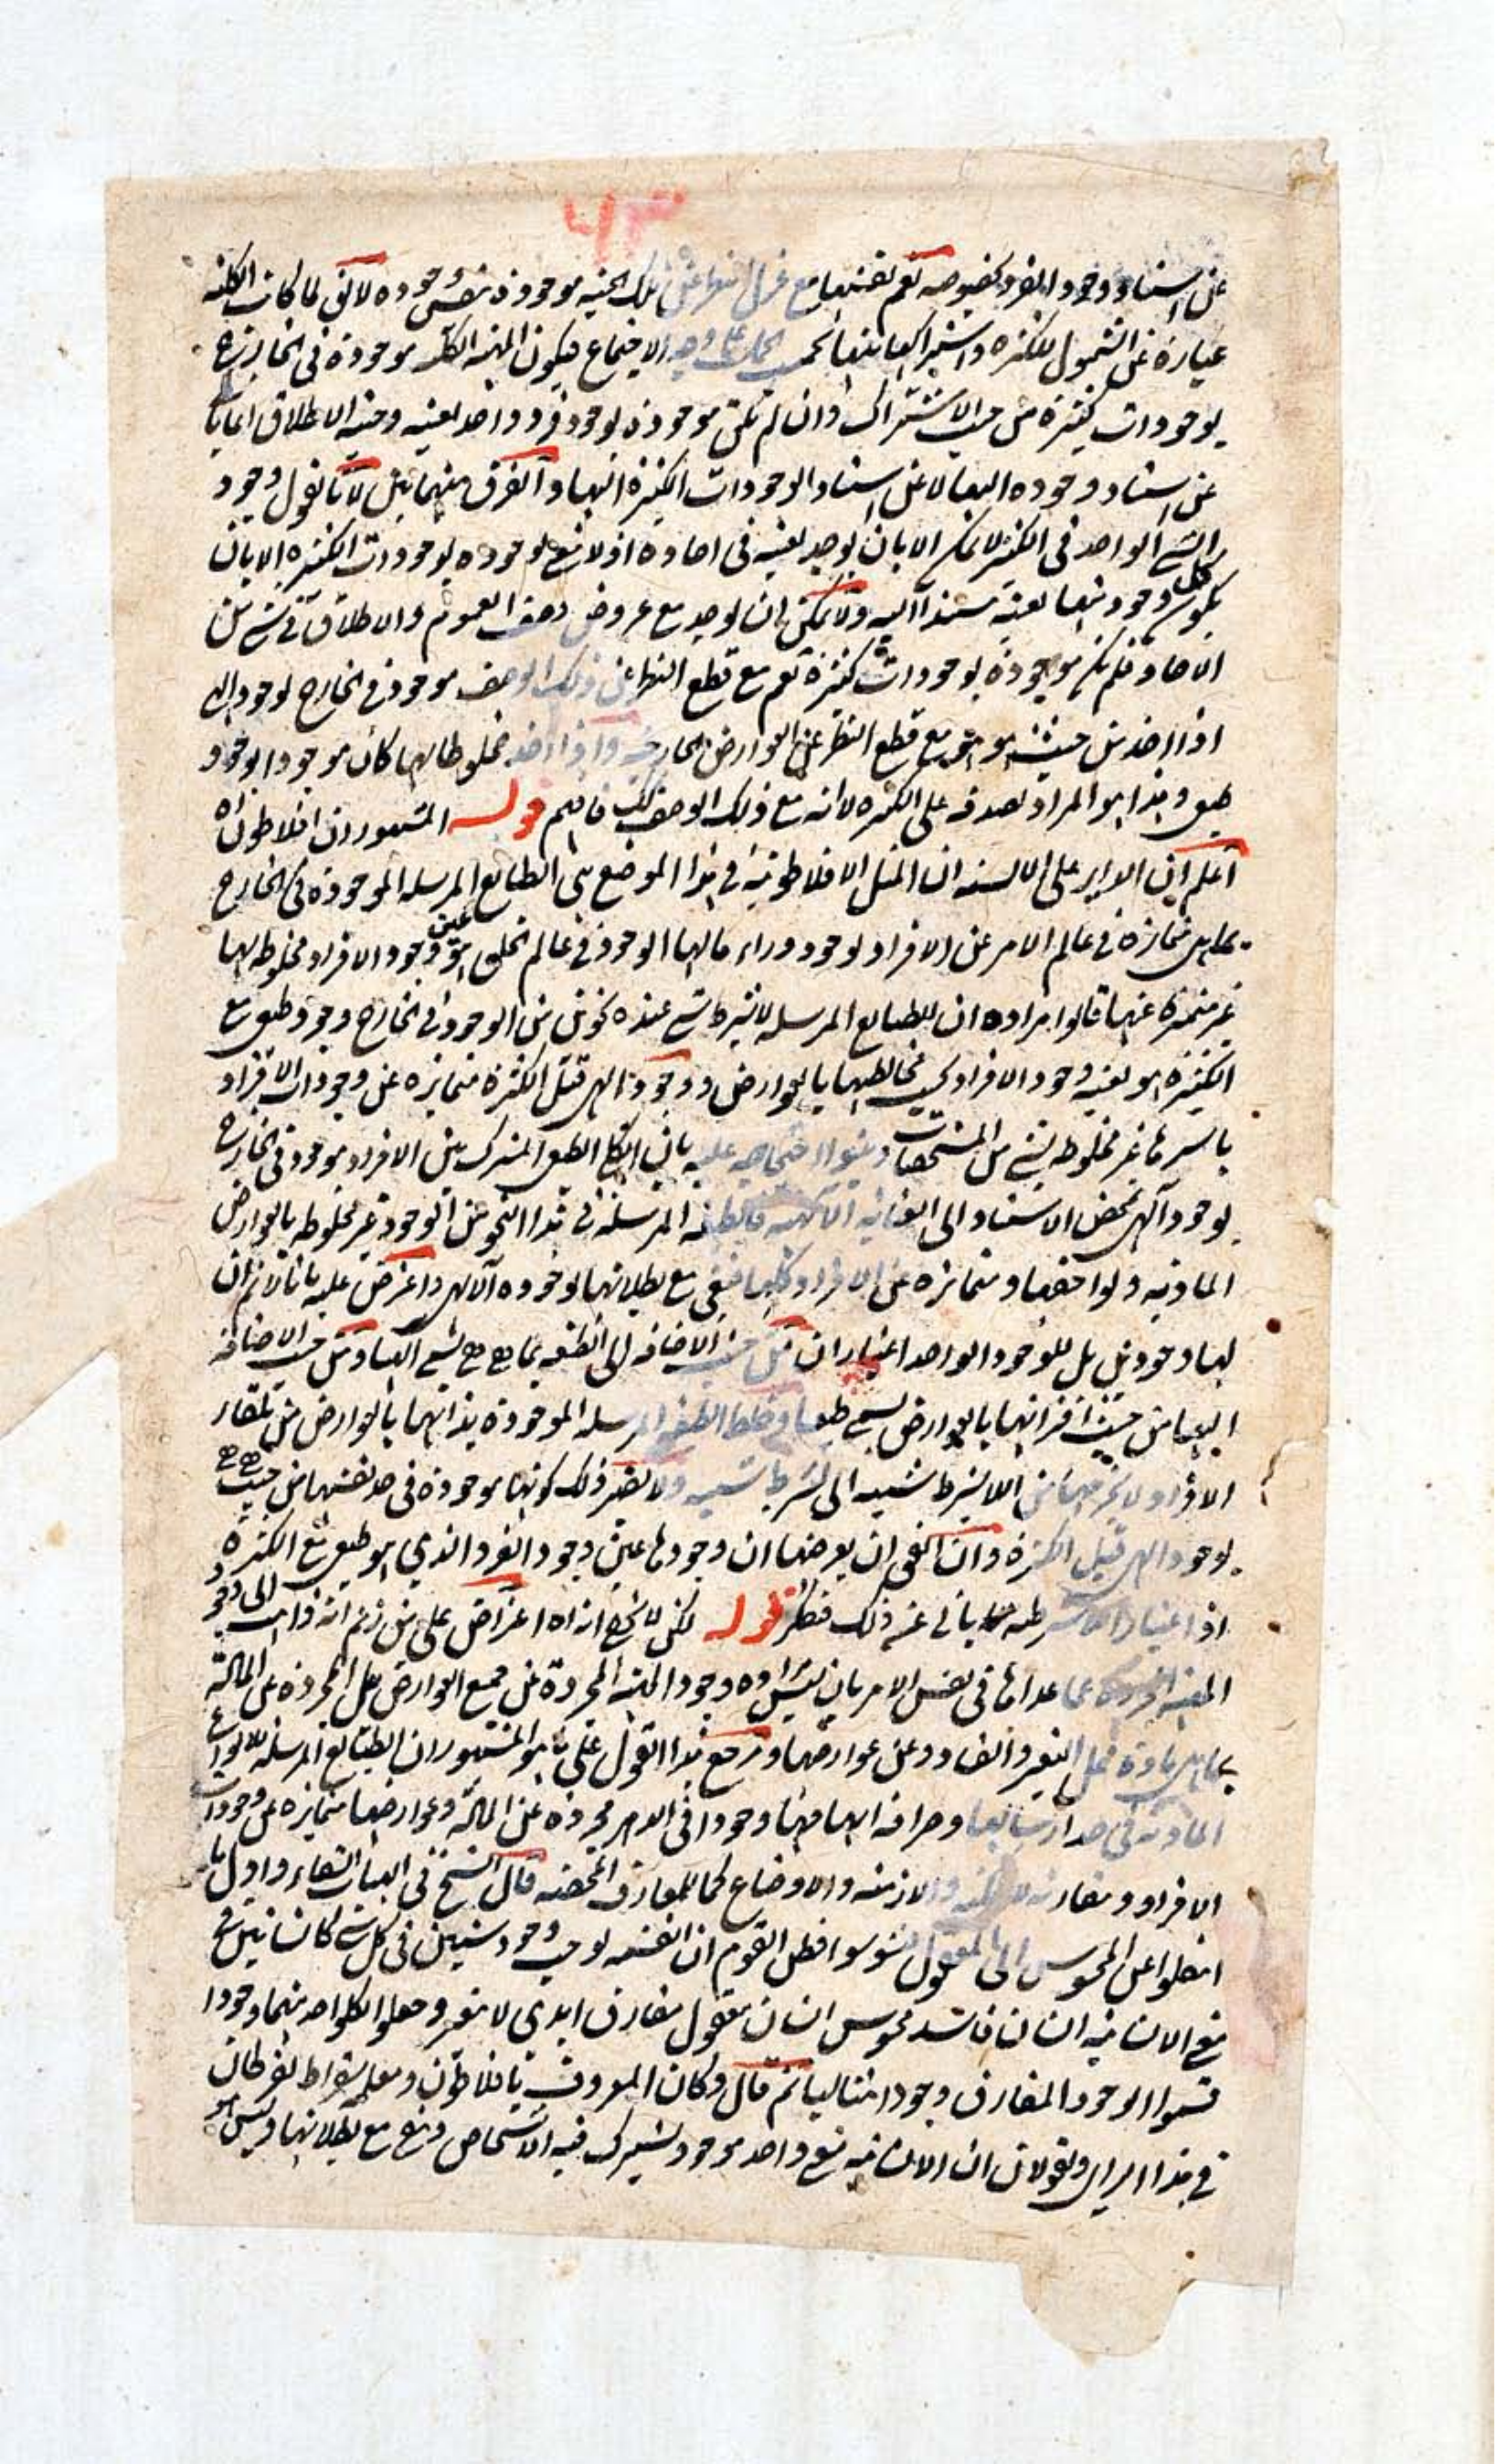 ٦٣
عن استناد وجود الفرد بخصوصه نعم نفسها مع عزل النظر عن تلك الحيثية موجودة بنفس وجوده لا يقال لما كانت الكلية
عبارة عن الشمول للكثرة واشتراكها بينها بحسب الحمل على وجه الاجتماع فيكون المهية الكلية موجودة في الخارج
بوجودات كثيرة من حيث الاشتراك وان لم تكن موجودة بوجود فرد واحد بعينه وحيثية الاطلاق
عن استناد وجوده اليها لا عن استناد الوجودات الكثيرة اليها والفرق بينهما بين لانا نقول وجود
الشيء الواحد في الكثير لا يمكن الا بان يوجد بعينه في احاده اذ لا معنى لوجوده بوجودات الكثيرة الا بان
يكون كل وجود منها بعينه مستندا اليه ولا يمكن ان يوجد مع عروض وصف العموم والاطلاق في شيء من
الاحاد فلم يكن موجودة بوجودات كثيرة نعم مع قطع النظر عن ذلك الوصف موجود في الخارج بوجود الهي
اذا اخذ من حيث هو هو مع قطع النظر عن العوارض الخارجية واذا اخذ مخلوطا بها كان موجودا بوجود
طبيعي وهذا هو المراد بصدقه على الكثيرة لا انه مع ذلك الوصف كذلك فافهم قوله المشهور ان افلاطون اه
اعلم ان الداير على الالسنة ان المثل الافلاطونية في هذا الموضع هي الطبايع المرسلة الموجودة في الخارج
بما هي متمايزة في عالم الامر عن الافراد بوجود وراء ما لها الوجود في عالم الخلق هو عين وجود الافراد مخلوطة بها
غير متميزة عنها قالوا مراده ان للطبايع المرسلة لا بشرط شيء عنده نحوين من الوجود في الخارج وجود طبيعي مع
الكثيرة هو بعينه وجود الافراد بحسب مخالطها بالعوارض ووجود الهي قبل الكثرة متمايزة عن وجودات الافراد
باسرها غير مخلوطة بشيء من المشخصات وبنوا احتجاجه عليه بان الكلي الطبيعي المشترك بين الافراد موجود في الخارج
بوجود الهي بمحض الاستناد الى العناية الالهية فالطبيعة المرسلة في هذا النحو من الوجود غير مخلوطة بالعوارض
المادية ولواحقها ومتمايزة عن الافراد كلها فتبقى مع بطلانها بوجوده الالهي واعترض عليه بانا لا نم ان
لها وجودين بل للوجود الواحد اعتباران من حيث الاضافة الى الطبيعة بما هي هي يسمى الهيا ومن حيث الاضافة
اليها من حيث اقترانها بالعوارض يسمى طبيعيا وخلط الطبيعة المرسلة الموجودة بذاتها بالعوارض من تلقاء
الافراد لا يخرجها عن اللا بشرط شيئية الى بشرط شيئية ولا يضير ذلك كونها موجودة في حد نفسها من حيث هي هي
بوجود الهي قبل الكثرة وان اتفق ان يعرضها ان وجودها عين وجود الفرد الذي هو طبيعي مع الكثرة
اذ اعتبار اللا بشرطية يابى عنه ذلك فتفكر قوله لكن لا يخفى انه اه اعتراض على من زعم انه ذاهب الى وجود
المهية المجردة عما عداها في نفس الامر بان ليس مراده وجود المهية المجردة عن جميع العوارض بل المجردة عن المادة
بما هي مادة محل التغير والفساد وعن عوارضها ومرجع هذا القول على ما هو المشهور ان الطبايع المرسلة للانواع
المادية في حد ارسالها وصرافة ابهامها وجودا في الدهر مجردة عن المادة وعوارضها متمايزة عن وجودات
الافراد ومفارقة للامكنة والازمنة والاوضاع كما للمفارق المحضة قال الشيخ في الهيات الشفاء واول ما
انتقلوا عن المحسوس الى المعقول تشوشوا فظن القوم ان القسمة يوجب وجود شيئين في كل شيء كانسانين في
معنى الانسانية انسان فاسد محسوس انسان معقول مفارق ابدي لا يتغير وجعلوا لكل واحد منهما وجودا
فسموا الوجود المفارق وجودا مثاليا ثم قال وكان المعروف بافلاطون ومعلمه سقراط يفرطان
في هذا الراى ويقولان ان الانسانية معنى واحد موجود يشترك فيه الاشخاص ويبقى مع بطلانها وليس هو